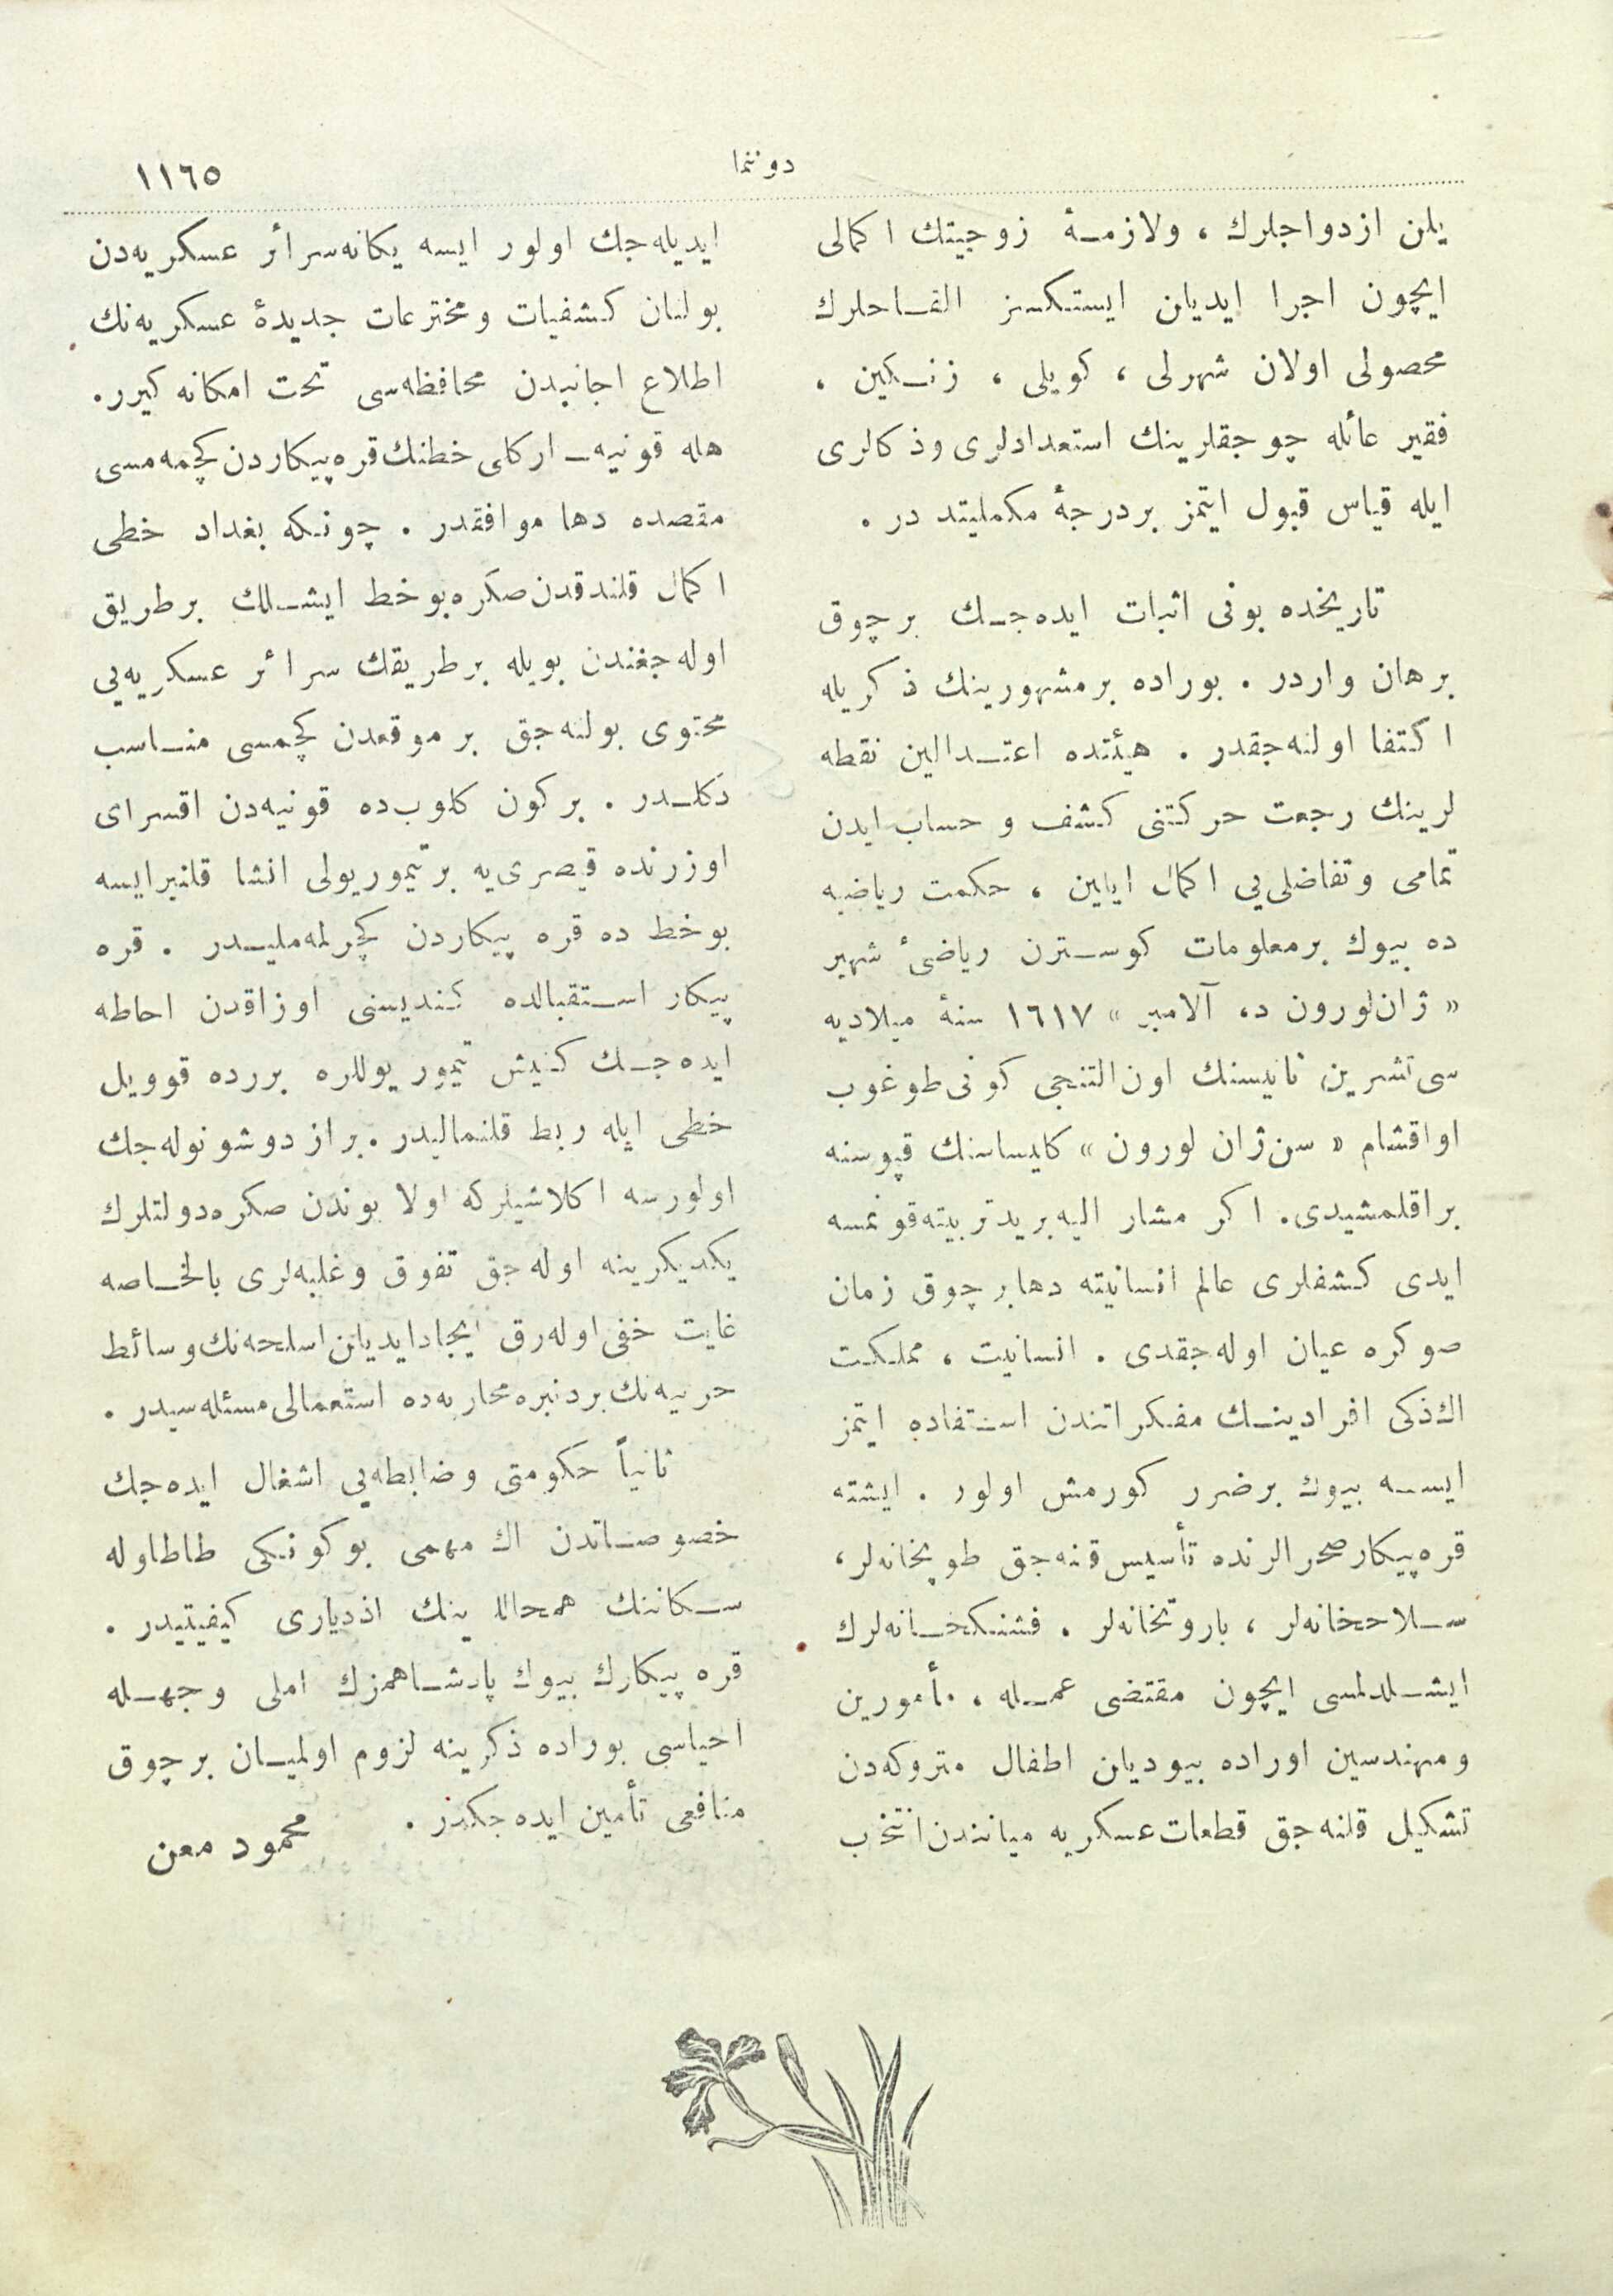 دوننما
١١٦٥
يلن ازدواجلرك ، ولازمۀ زوجيتك اكمالی
ايچون اجرا ايديلن ايستكسز القاحلرك
محصولی اولان شهرلی ، كويلی ، زنكين ،
فقير عائله چوجقلرينك استعدادلری وذكالری
ايله قياس قبول ايتمز بردرجۀ مكمليتده در .
تاريخده بونی اثبات ايده‌جك برچوق
برهان واردر . بوراده برمشهورينك ذكريله
اكتفا اولنه‌جقدر . هيئتده اعتدالين نقطه
لرينك رجعت حركتنی كشف و حساب ايدن
تمامی وتفاضلی‌یی اكمال ايلين ، حكمت رياضيه
ده بيوك برمعلومات كوسترن رياضئ شهير
« ژان‌لورون د، آلامبر » ١٦١٧ سنۀ ميلاديه
سی تشرين ثانيسنك اون التنجی كونی طوغوب
اواقشام « سن‌ژان لورون » كليساسنك قپوسنه
براقلمشيدی. اكر مشار اليه بريدتربيته‌قونمسه
ايدی كشفلری عالم انسانيته دهابرچوق زمان
صوكره عيان اوله‌جقدی . انسانيت ، مملكت
اك‌ذكی افرادينك مفكراتندن استفاده ايتمز
ايسه بيوك برضرر كورمش اولور . ايشته
قره‌پيكار صحرالرنده تأسيس قلنه‌جق طوپخانه‌لر،
سلاحخانه‌لر ، باروتخانه‌لر . فشنكخانه‌لرك
ايشلدلمسی ايچون مقتضی عمله ، مأمورين
ومهندسين اوراده بيوديلن اطفال متروكه‌دن
تشكيل قلنه‌جق قطعات عسكريه ميانندن انتخب
ايديله‌جك اولور ايسه يكانه سرائر عسكريه‌دن
بولنان كشفيات ومخترعات جديدۀ عسكريه‌نك
اطلاع اجانبدن محافظه‌سی تحت امكانه كيرر.
هله قونيه ـ اركلی خطنك قره‌پيكاردن كچمه‌مسی
مقصده دها موافقدر . چونكه بغداد خطی
اكمال قلندقدن صكره بوخط ايشلك برطريق
اوله‌جغندن بويله برطريقك سرائر عسكريه‌یی
محتوی بولنه‌جق بر موقعدن كچمسی مناسب
دكلدر . بركون كلوب‌ده قونيه‌دن اقسرای
اوزرنده قيصری‌يه برتيموريولی انشا قلنيرايسه
بوخط ده قره پيكاردن كچرلمه‌مليدر . قره
پيكار استقبالده كنديسنی اوزاقدن احاطه
ايده‌جك كنيش تيمور يوللره بررده قوويل
خطی ايله ربط قلنماليدر . براز دوشونوله‌جك
اولورسه اكلاشيلركه اولا بوندن صكره‌دولتلرك
يكديكرينه اوله‌جق تفوق وغلبه‌لری بالخاصه
غايت خفی اوله‌رق ايجادايديلن اسلحه‌نك‌وسائط
حربيه‌نك بردنبره محاربه‌ده استعمالی مسئله‌سيدر .
ثانياً حكومتی وضابطه‌یی اشغال ايده‌جك
خصوصاتدن اك مهمی بوكونكی طاطاوله
سكاننك همحاللرينك ازديادی كيفيتيدر .
قره پيكارك بيوك پادشاهمزك املی وجهله
احياسی بوراده ذكرينه لزوم اولميان برچوق
منافعی تأمين ايده‌جكدر .
محمود معن